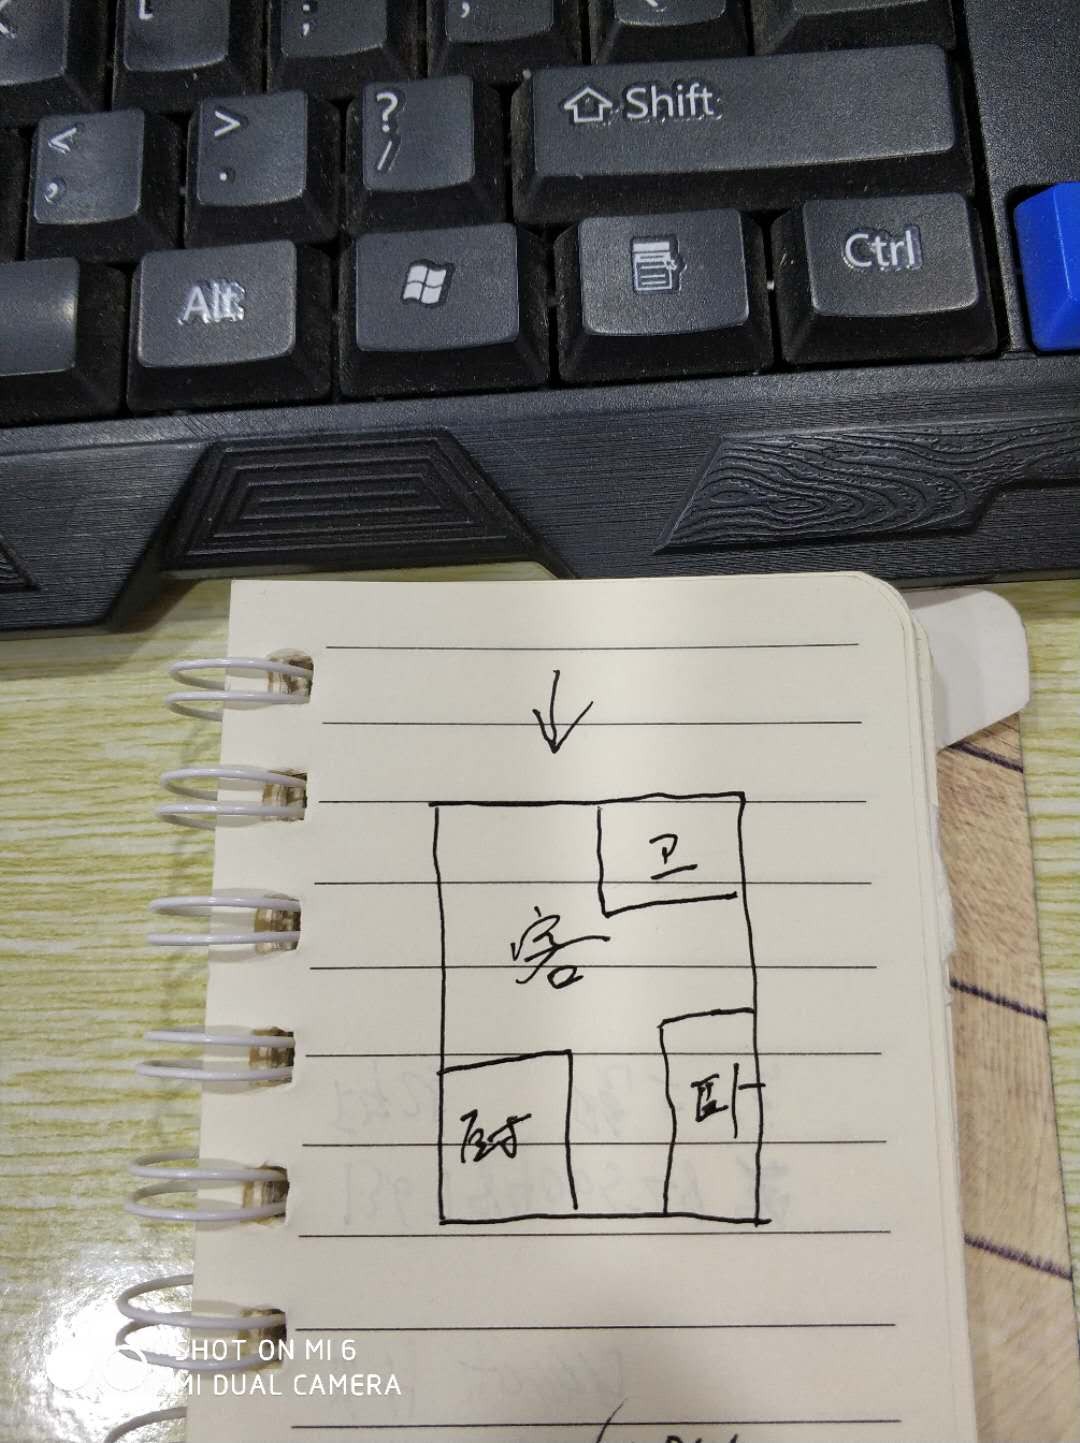 [
;
< > ? Shift
, . /
Alt Ctrl
卫
客
厨 卧
SHOT ON MI 6
MI DUAL CAMERA